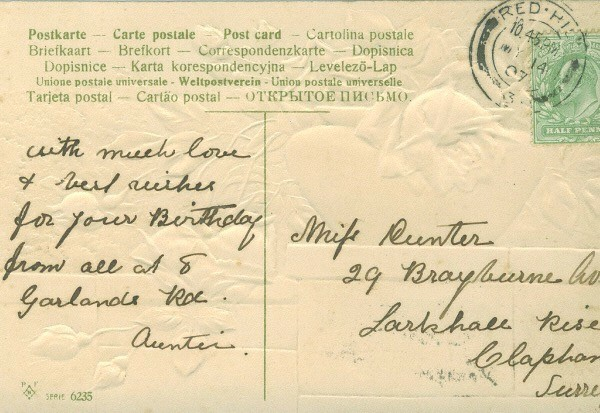 Postkarte — Carte postale — Post card — Cartolina postale
Briefkaart — Brefkort — Correspondenzkarte — Dopisnica
Dopisnice — Karta korespondencyjna — Levelező-Lap
Unione postale universale - Weltpostverein - Union postale universelle
Tarjeta postal — Cartão postal — ОТКРЫТОЕ ПИСЬМО.
RED·HI
10.45 PM
MY 14
07
3
HALF PENN
with much love
& best wishes
for your Birthday
from all at 8
Garlands Rd.
Auntie.
Miss Dunter
29 Brayburne Av
Larkhall Rise
Clapham
Surrey
SERIE 6235